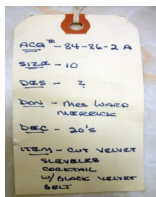 ACQ# - 84-86-2 A
SIZE - 10
DES - ?
DON - MRS WARD
MERRICK
DEC - 20's
ITEM - CUT VELVET
SLEVELES
COCKTAIL
W/ BLACK VELVET
BELT